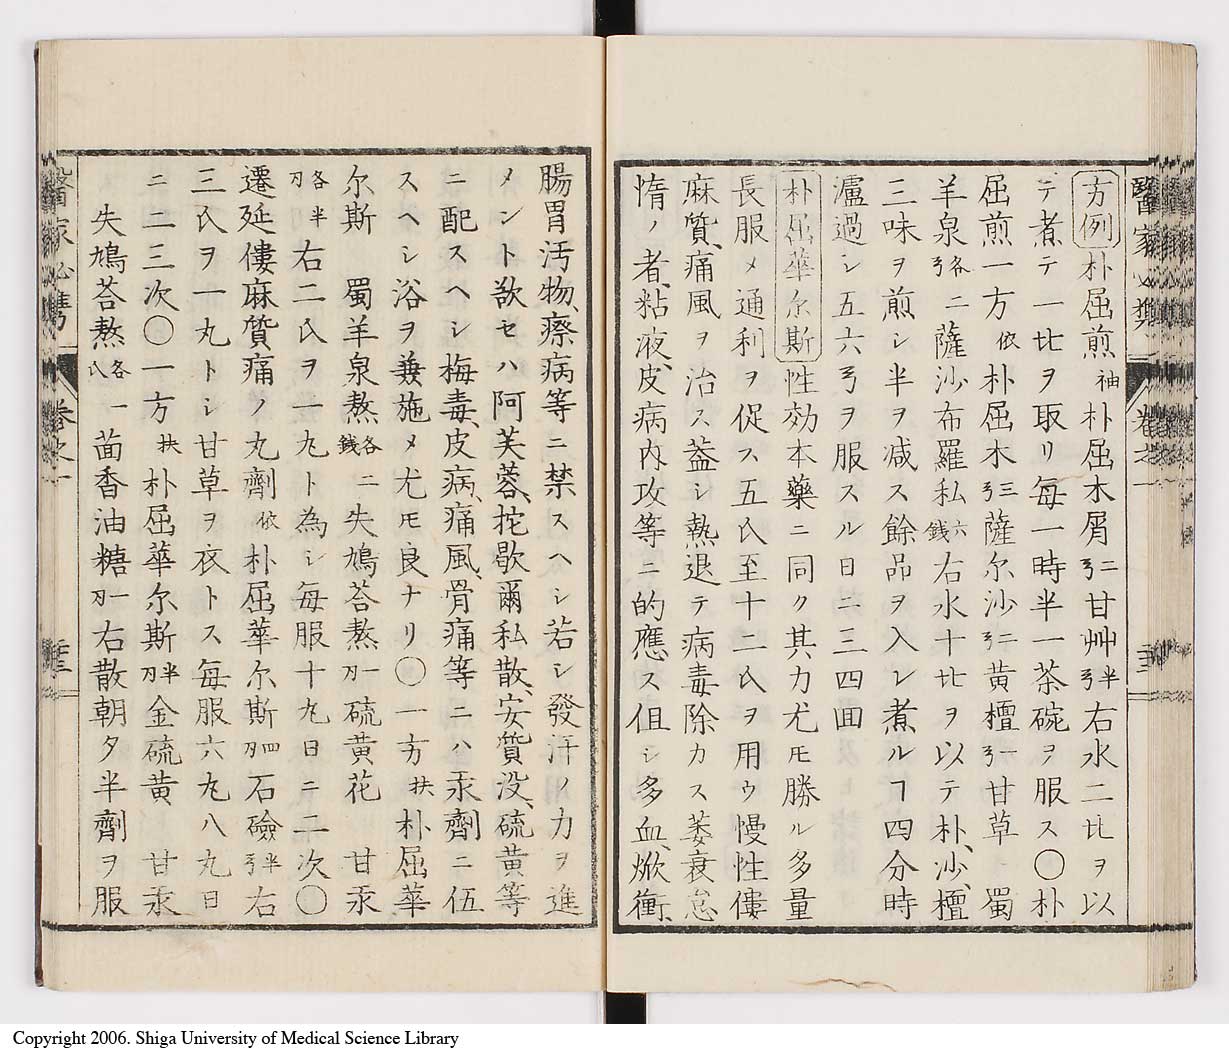 方例朴屈煎袖朴屈木屑二弓甘艸半弓右水二𠤎ヲ以
テ煮テ一𠤎ヲ取リ毎一時半一茶碗ヲ服ス〇朴
屈煎一方依朴屈木三弓薩尔沙二弓黄檀一弓甘草イ蜀
羊泉各弓二薩沙布羅私六銭右水十𠤎ヲ以テ朴、沙、檀
三味ヲ煎シ半ヲ减ス餘品ヲ入レ煮ルヿ四分時
瀘過シ五六弓ヲ服スル日ニ三四囬
朴屈華尓斯性効本藥ニ同ク其力尤モ勝ル多量
長服メ通利ヲ促ス五氏至十二氏ヲ用ウ慢性僂
麻質、痛風ヲ治ス蓋シ熱退テ病毒除カス萎衰怠
惰ノ者、粘液、皮病内攻等ニ的應ス伹シ多血、焮衝、
腸胃汚物、瘵病等ニ禁スヘシ若シ發汗ノ力ヲ進
メント欲セハ阿芙蓉、抡歇爾私散、安質没、硫黄等
ニ配スヘシ梅毒、皮病、痛風、骨痛等ニハ汞劑ニ伍
スヘシ浴ヲ兼施メ尤モ良ナリ〇一方扶朴屈華
尓斯　蜀羊泉熬各二銭失鳩荅熬一刄硫黄花　甘汞
各半刄右二氏ヲ一丸ト為シ毎服十丸日ニ二次〇
遷延僂麻質痛ノ丸劑依朴屈華尓斯四刄石鹸半弓右
三氏ヲ一丸トシ甘草ヲ衣トス毎服六丸八丸日
ニ二三次〇一方扶朴屈華尓斯半刄金硫黄　甘汞
失鳩荅熬各氏一茴香油糖一刄右散朝夕半劑ヲ服
醫家必携
卷之一